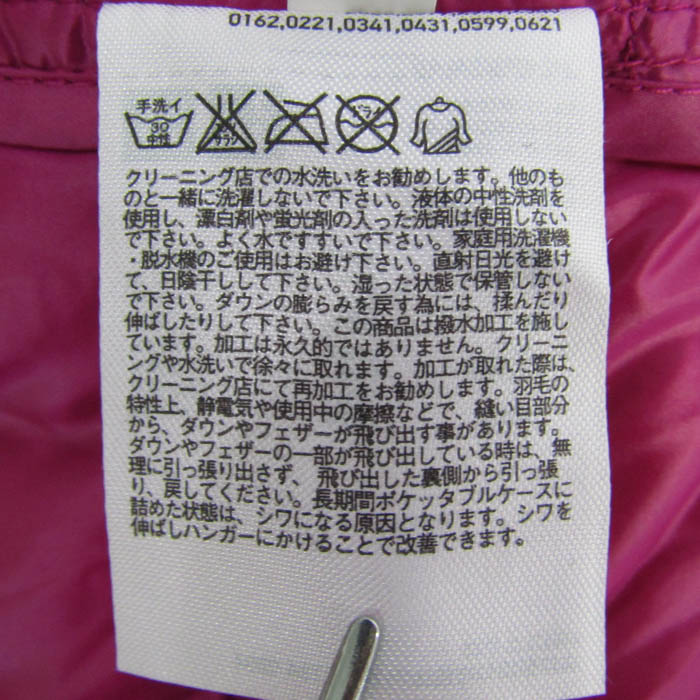 0162,0221,0341,0431,0599,0621
手洗イ
30
中性
エンソ
サラシ
ドライ
クリーニング店での水洗いをお勧めします。他のも
のと一緒に洗濯しないで下さい。液体の中性洗剤を
使用し、漂白剤や蛍光剤の入った洗剤は使用しない
で下さい。よく水ですすいで下さい。家庭用洗濯機
・脱水機のご使用はお避け下さい。直射日光を避け
て、日陰干しして下さい。湿った状態で保管しない
で下さい。ダウンの膨らみを戻す為には、揉んだり
伸ばしたりして下さい。この商品は撥水加工を施し
ています。加工は永久的ではありません。クリーニ
ングや水洗いで徐々に取れます。加工が取れた際は、
クリーニング店にて再加工をお勧めします。羽毛の
特性上、静電気や使用中の摩擦などで、縫い目部分
から、ダウンやフェザーが飛び出す事があります。
ダウンやフェザーの一部が飛び出している時は、無
理に引っ張り出さず、飛び出した裏側から引っ張
り、戻してください。長期間ポケッタブルケースに
詰めた状態は、シワになる原因となります。シワを
伸ばしハンガーにかけることで改善できます。